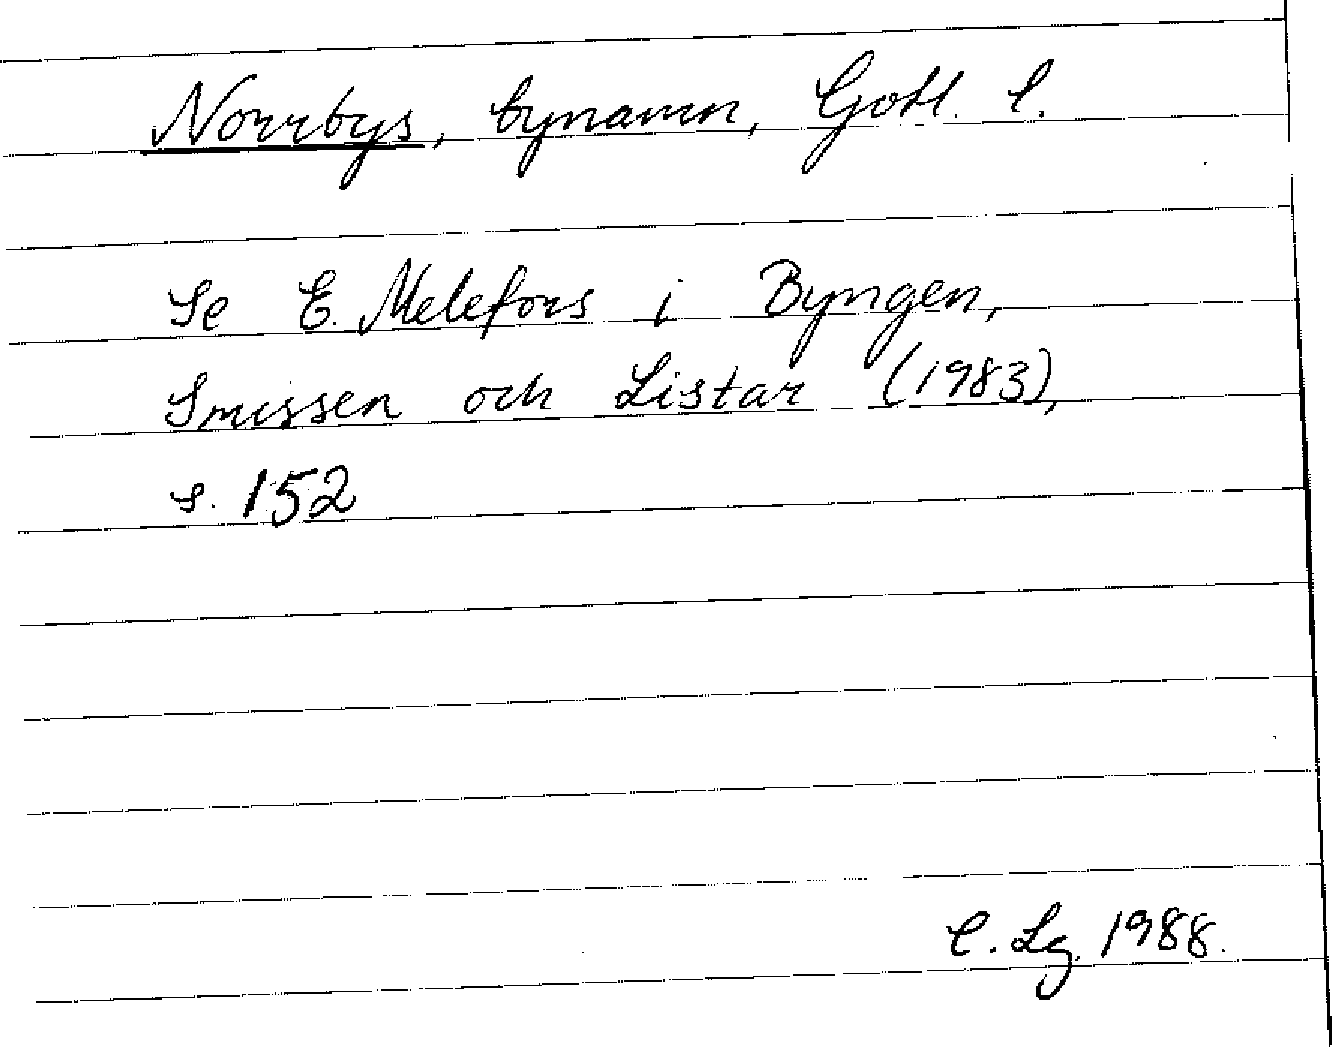 Norrbys, bynamn, Gotl. l.
Se E. Melefors i Byngen,
Smissen och Listar (1983),
s. 152
C. Lg. 1988.